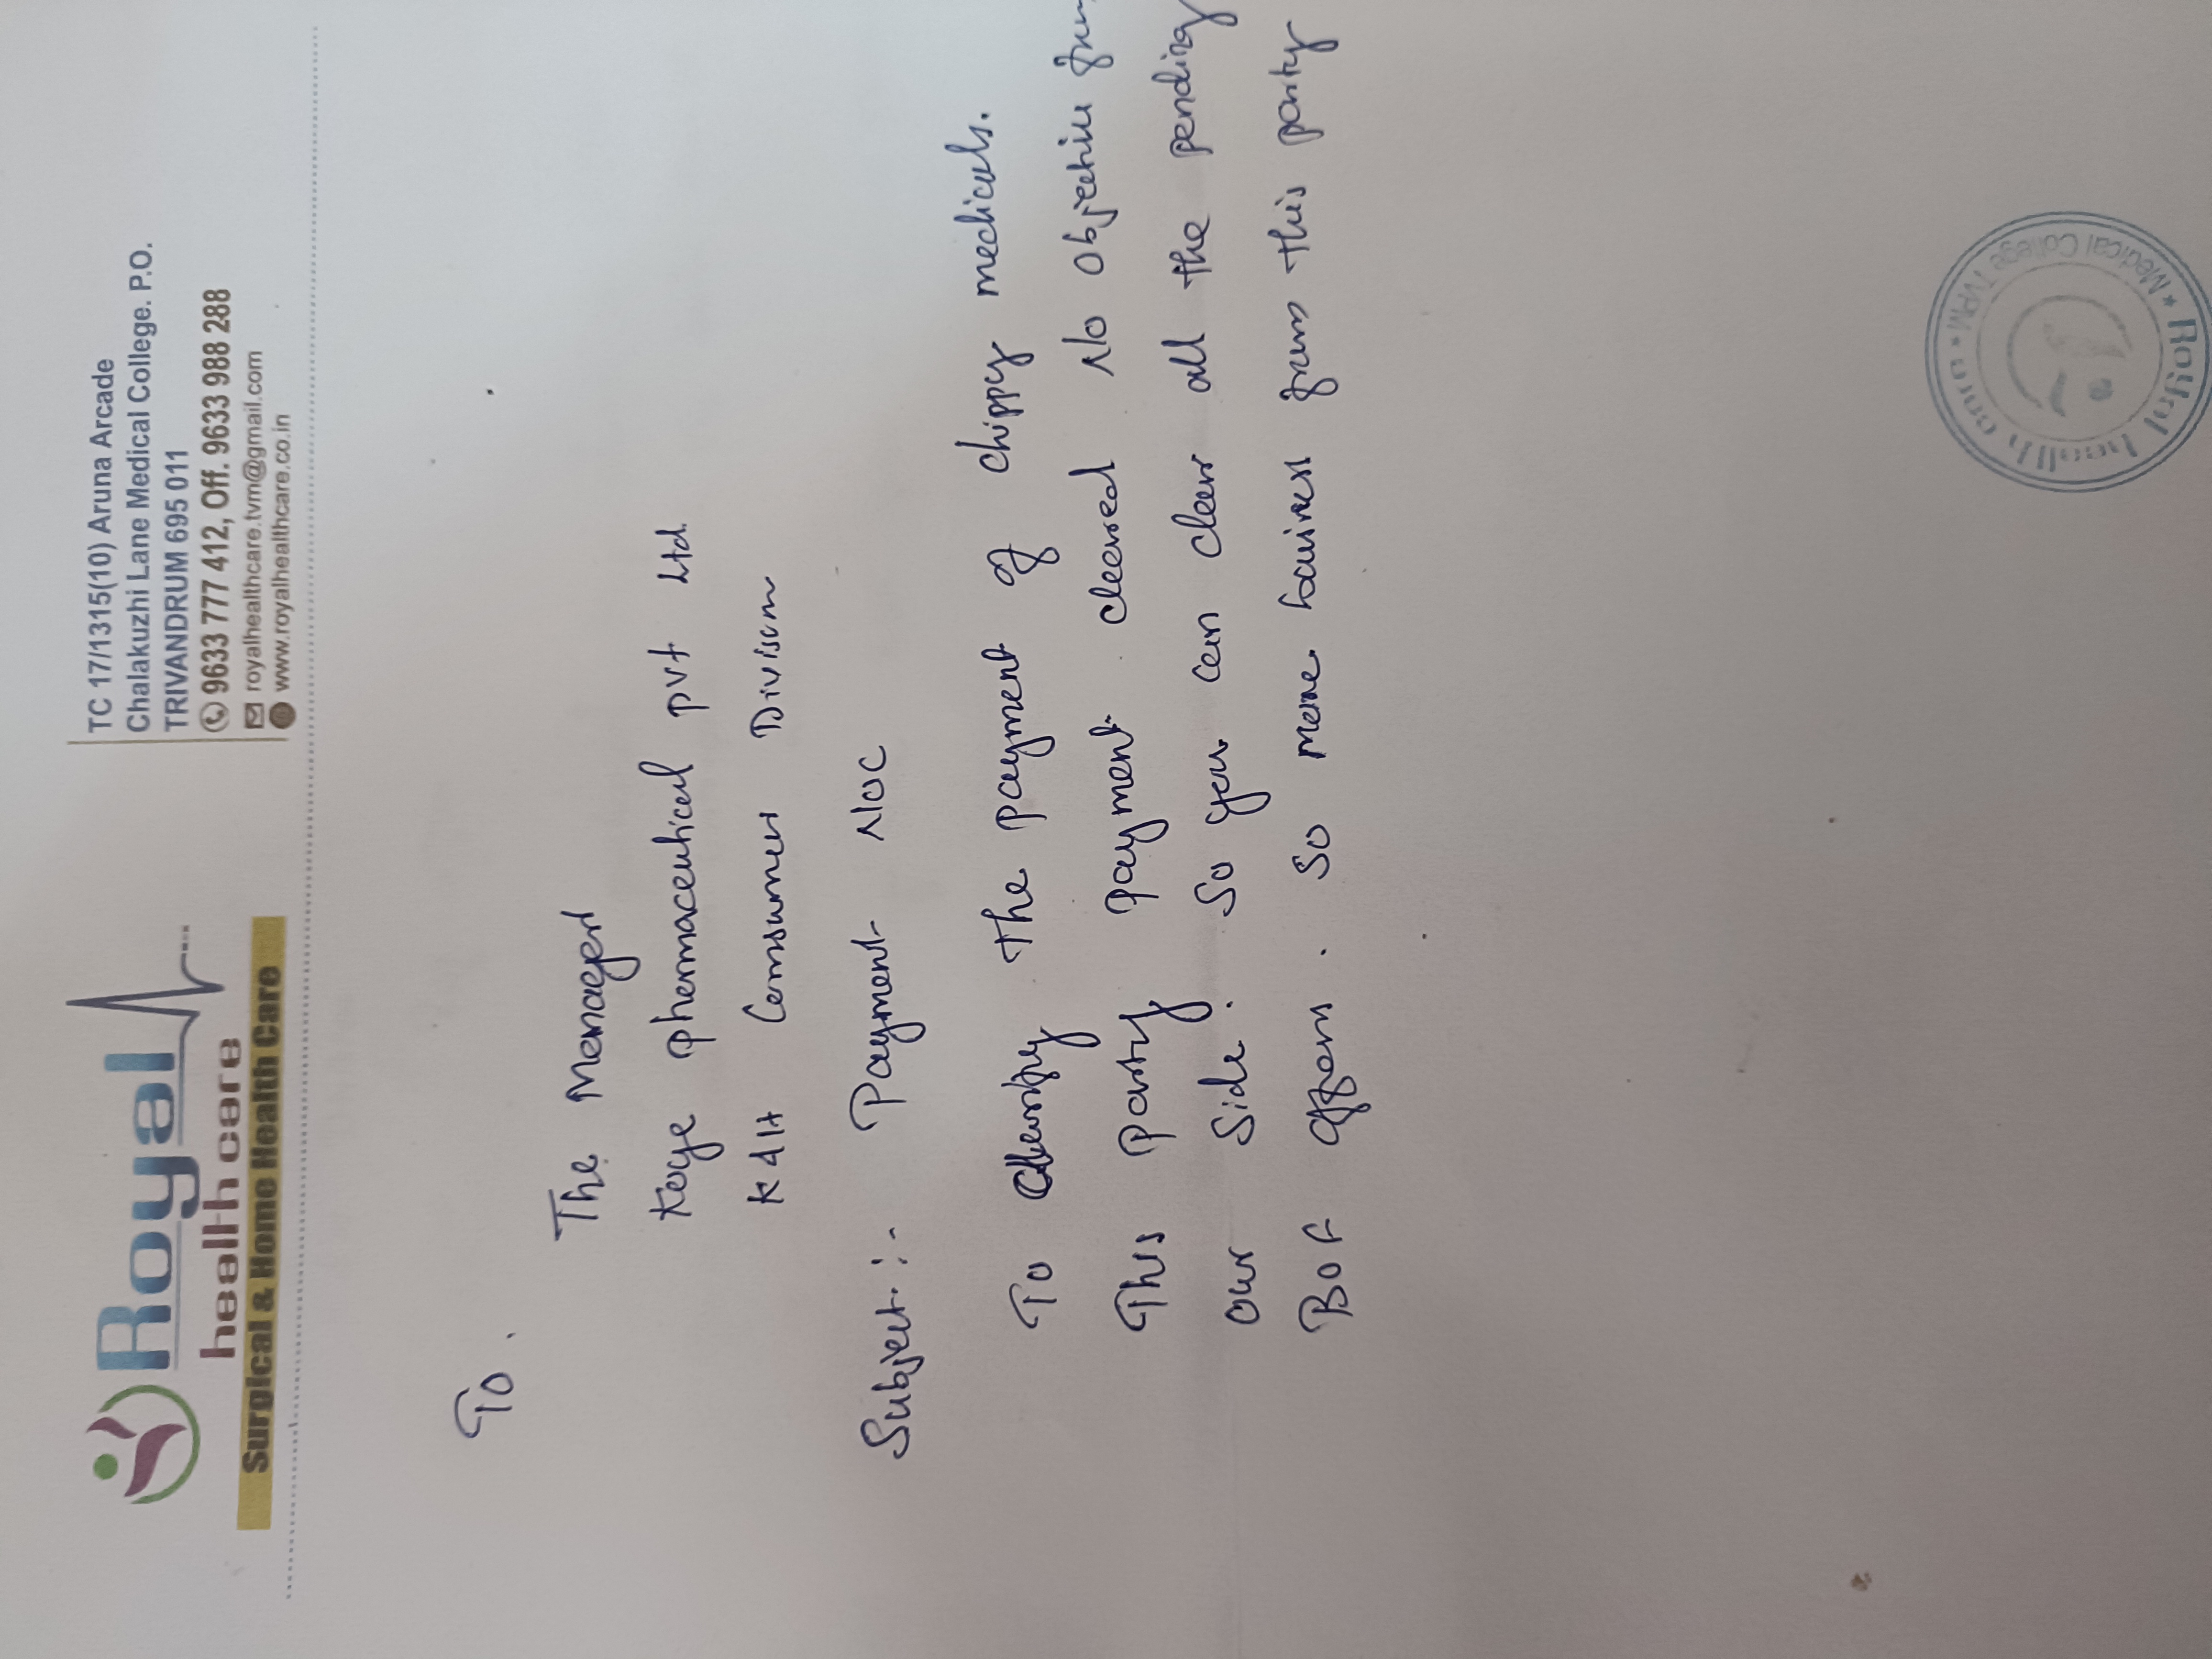 Royal
health care
Surgical & Home Health Care
TC 17/1315(10) Aruna Arcade
Chalakuzhi Lane Medical College. P.O.
TRIVANDRUM 695 011
9633 777 412, Off. 9633 988 288
royalhealthcare.tvm@gmail.com
www.royalhealthcare.co.in
To.
The Manager
Koye pharmaceutical pvt Ltd.
K4H Consumer Division
Subject :- Payment NOC
To the payment of chippy medicals.
This party payment cleared No objection
our Side. So you can clear all the pending
BOF offers. So more business from this party
Royal health care
★ Medical College TVPM ★